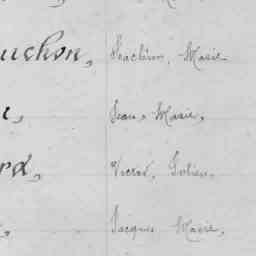 uchon, Marie
Jean, Marie,
rd, Victor, Julien,
Jacques Marie,